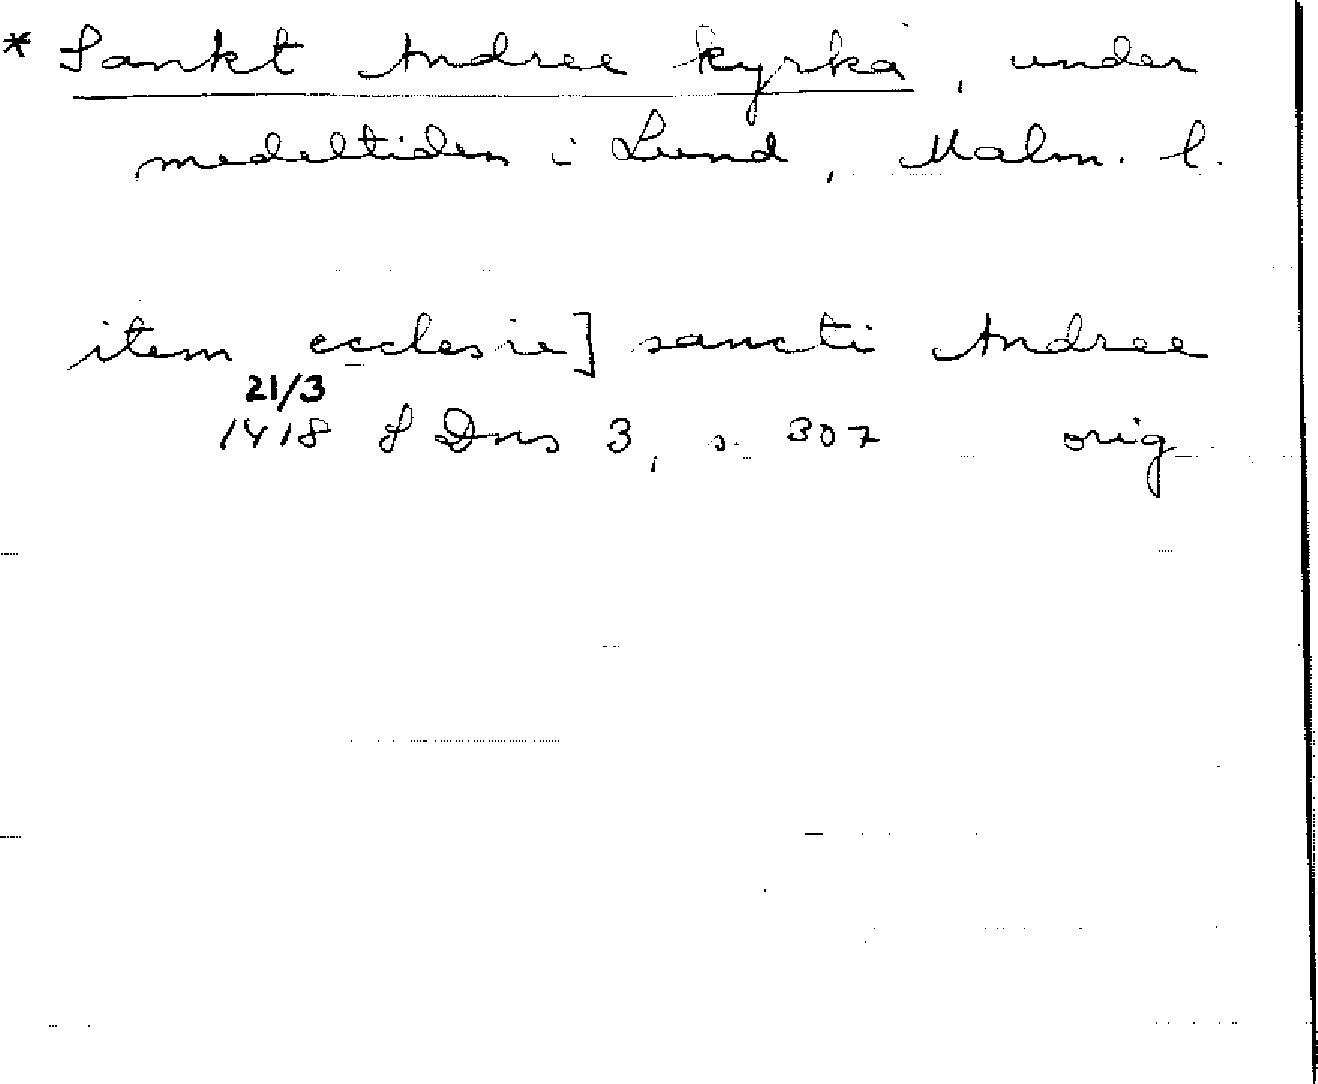 * Sankt Andree kyrka, under
medeltiden i Lund, Malm. l.
item ecclesie] sancti Andree
21/3
1418 SDns 3, s. 307 orig